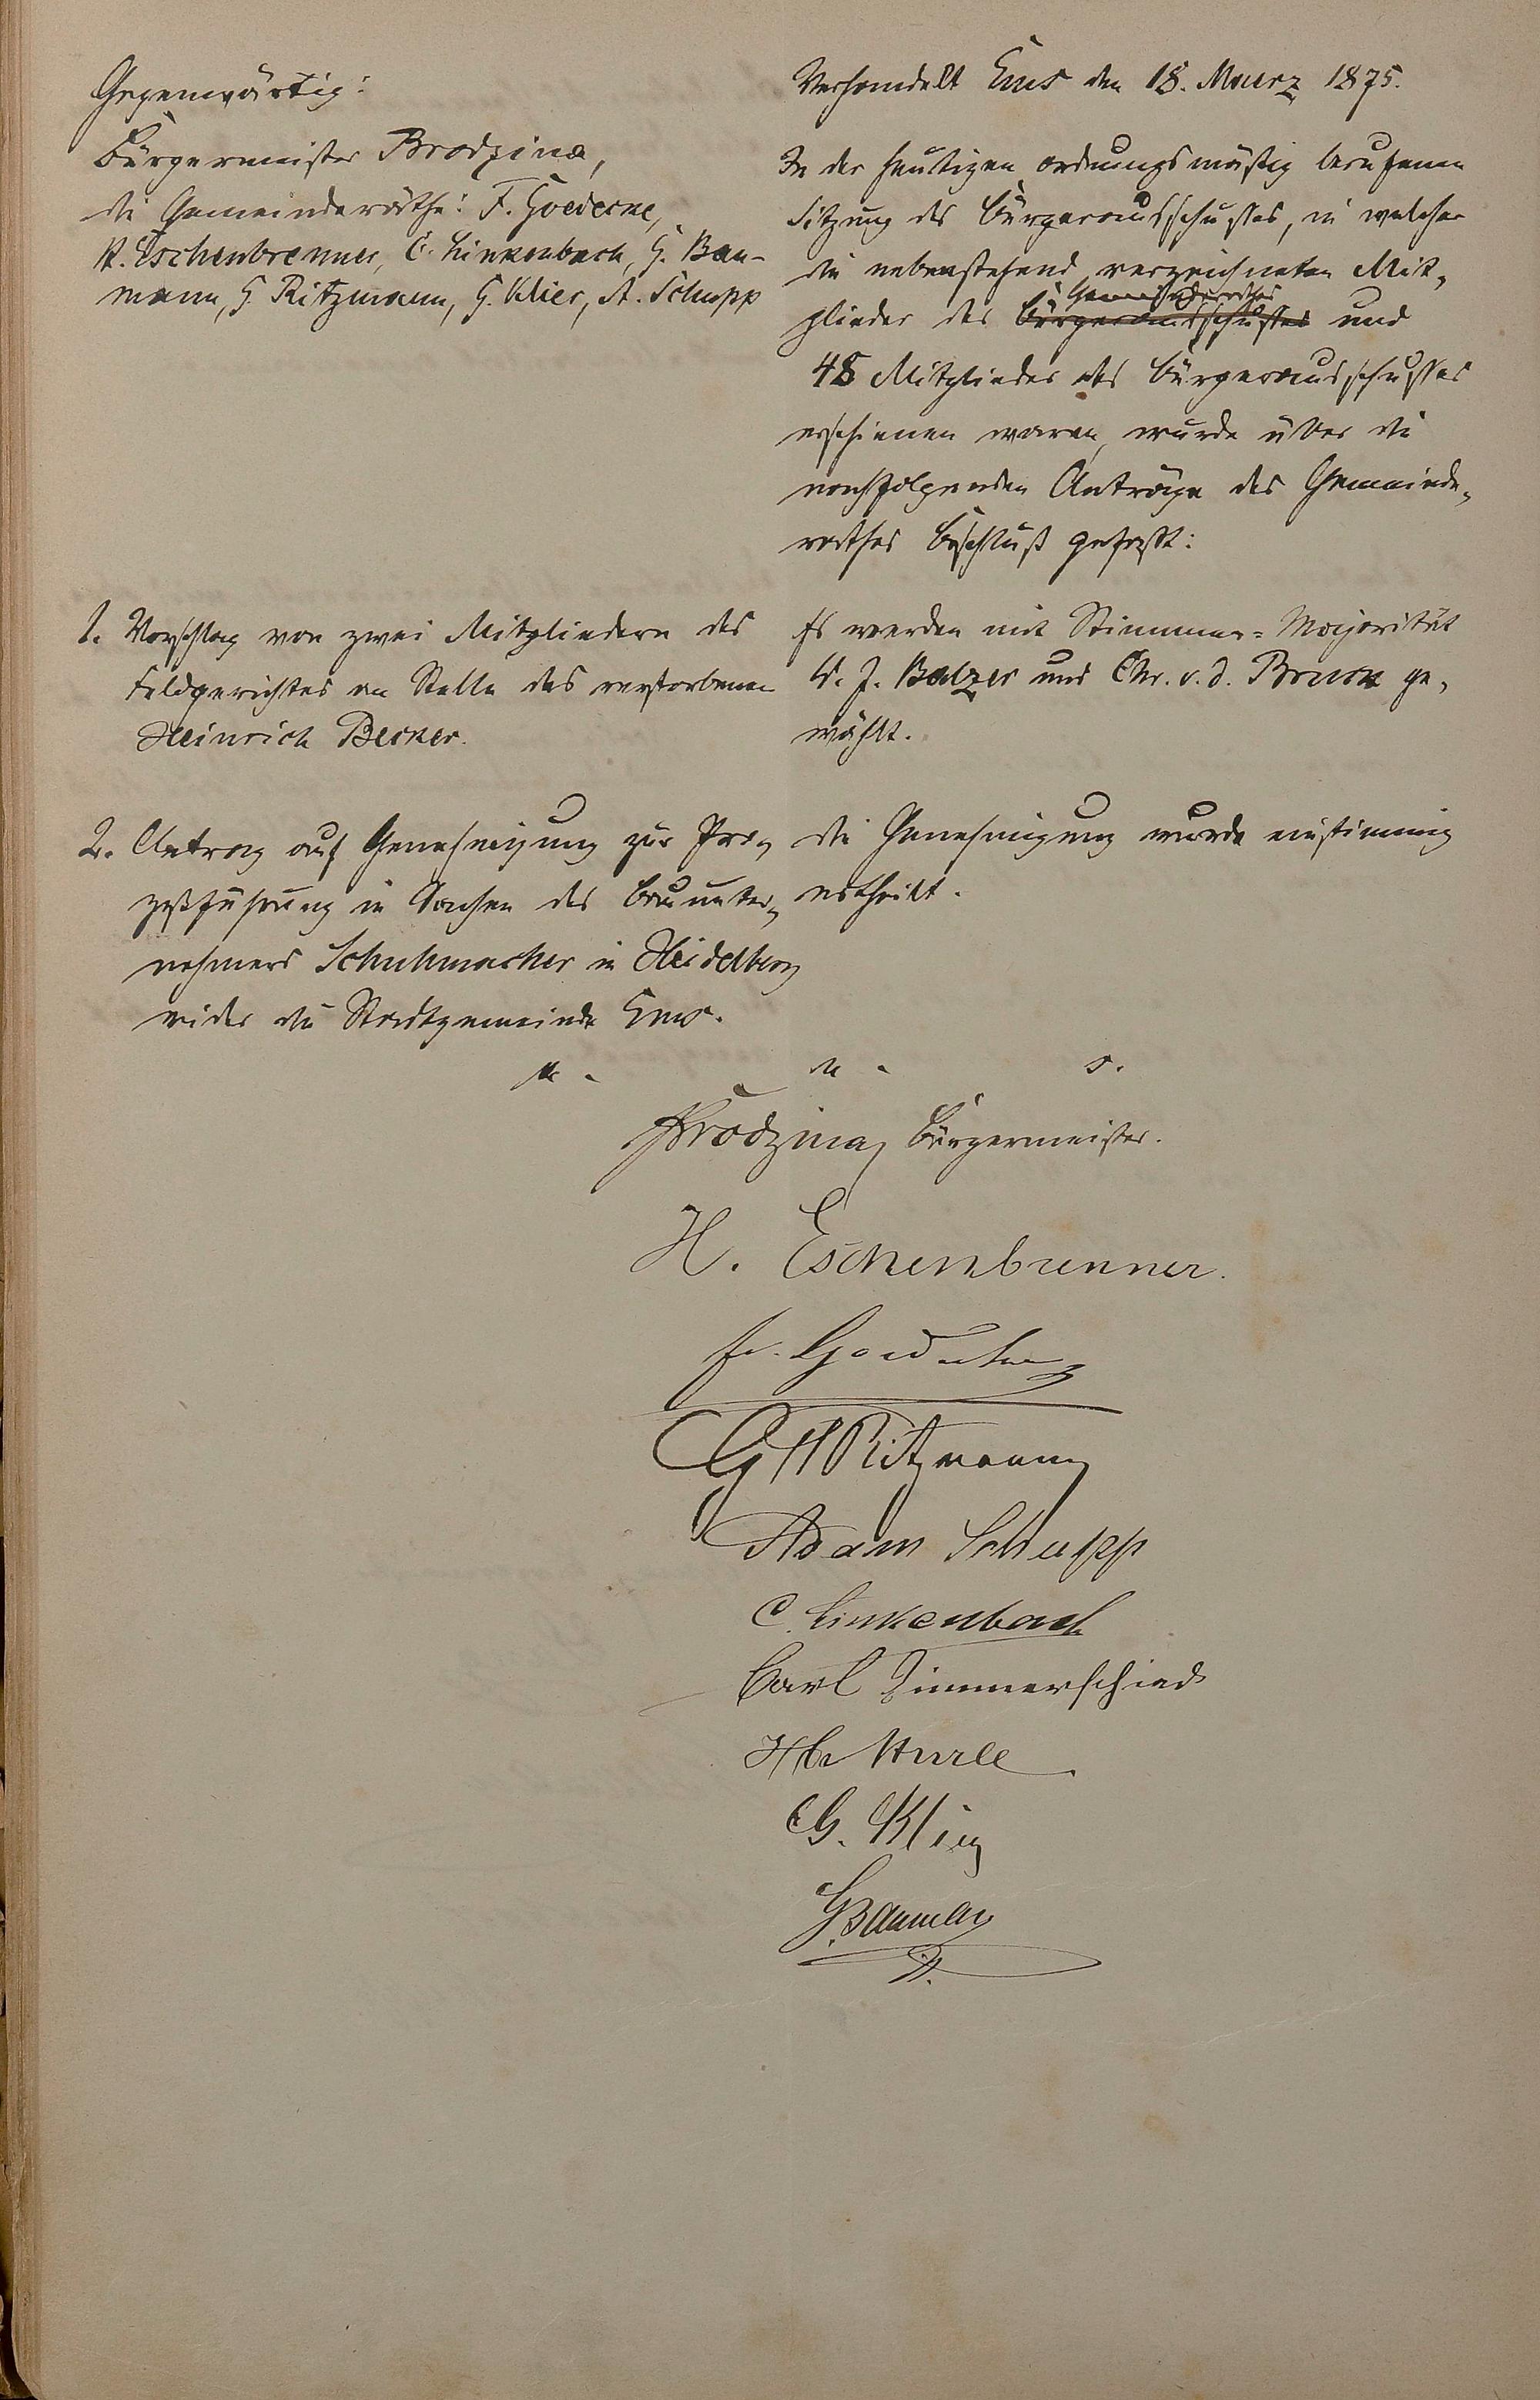 Gegenwärtig:
Bürgermeister Brodzina,
die Gemeinderäthe: F. Goedecke,
H. Eschenbrenner, C. Linkenbach, G. Bau-
mann, G. Ritzmann, G. Klier, A. Schupp
Verhandelt Ems den 18. Maerz 1875.
In der heutigen ordnungsmäßig berufenen
Sitzung des Bürgerausschusses, in welcher
die nebenstehend verzeichneten Mit-
Gemeinderathes
glieder des Bürgerausschusses und
48 Mitglieder des Bürgerausschusses
erschienen waren, wurde über die
nachfolgenden Anträge des Gemeinde-
rathes Beschluß gefaßt:
1. Vorschlag von zwei Mitgliedern des
Feldgerichtes an Stelle des verstorbenen
Heinrich Becker.
Es werden mit Stimmen-Majorität
W. J. Balzer und Chr. v. d. Bruck ge-
wählt.
2. Antrag auf Genehmigung zur Pro-
zeßführung in Sachen des Bauunter-
nehmers Schuhmacher in Heidelberg
wider die Stadtgemeinde Ems.
Die Genehmigung wurde einstimmig
ertheilt.
u. s.
Brodzina, Bürgermeister.
H. Eschenbrenner.
Fr. Goedecke
G H Ritzmann
Adam Schupp
C. Linkenbach
Carl Zimmerschied
G. Klier
G. Baumann